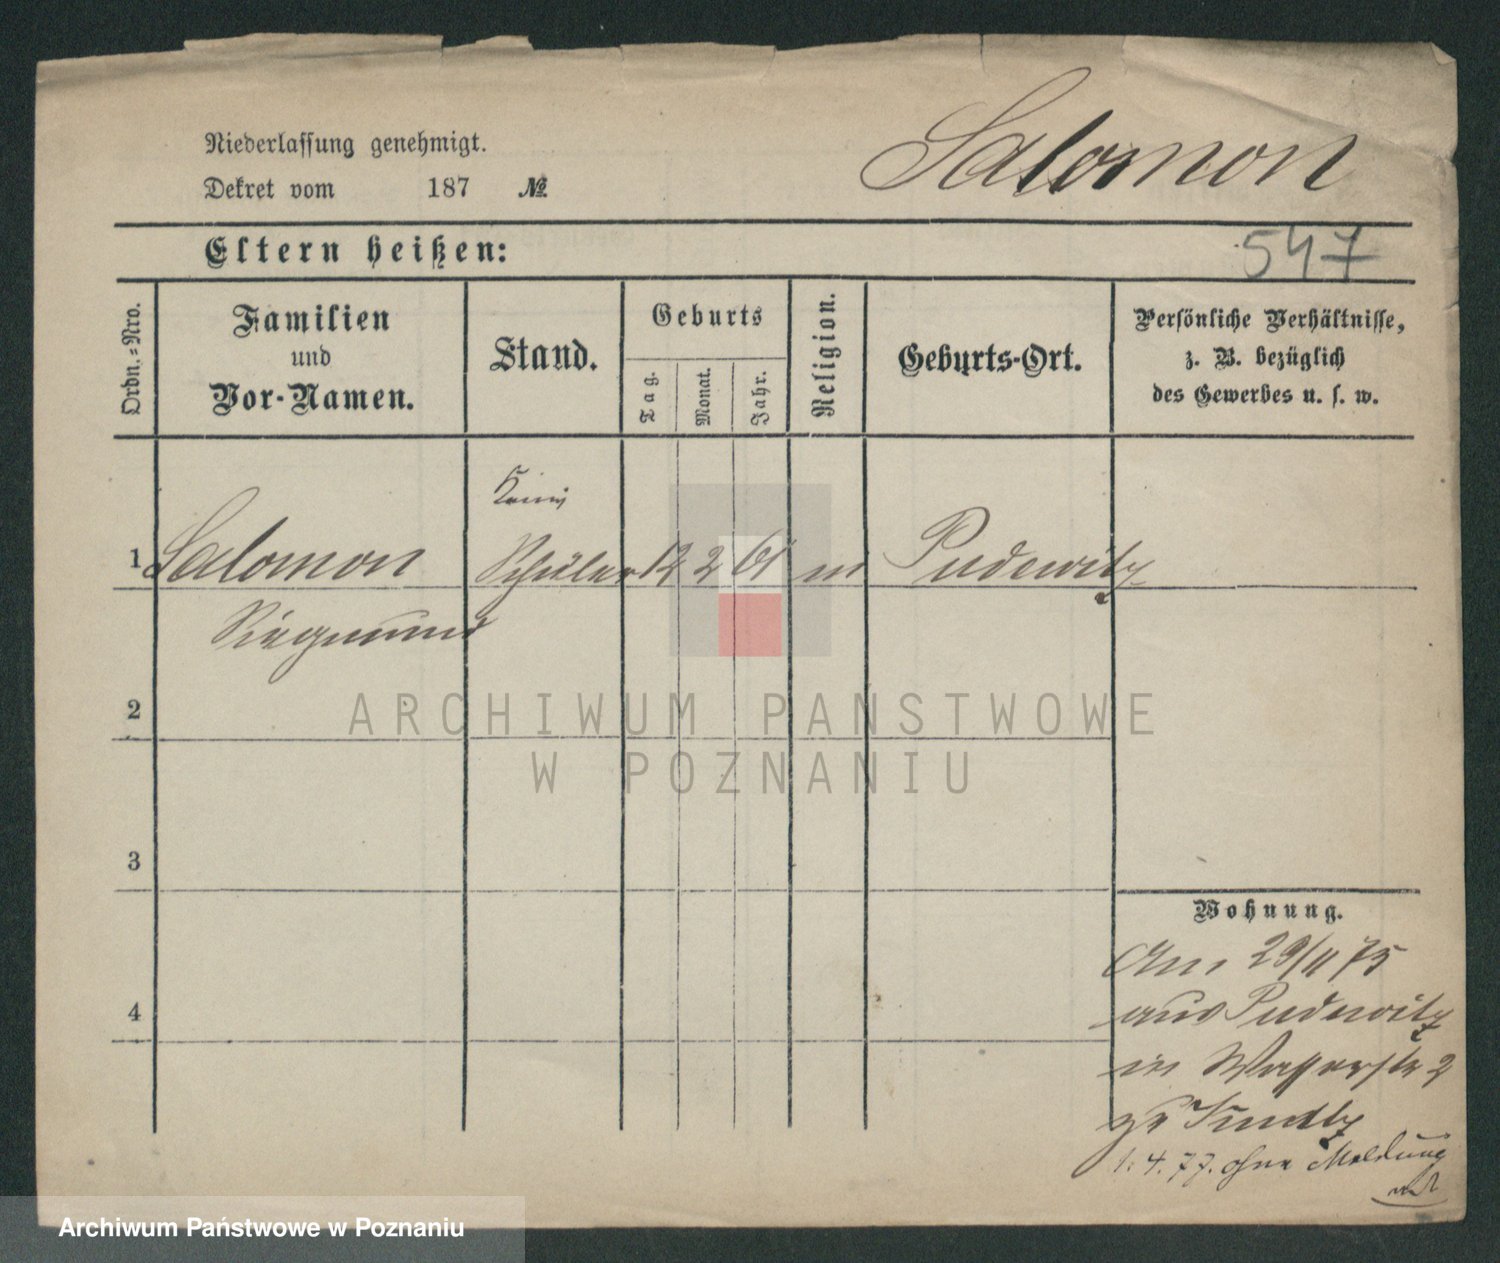 Salomon
Niederlassung genehmigt.
Dekret vom 187 №
Eltern heißen:
547
Ordn.-Nro.
Familien
und
Vor-Namen.
Stand.
Geburts
Tag.
Monat.
Jahr.
Religion.
Geburts-Ort.
Persönliche Verhältnisse,
z. B. bezüglich
des Gewerbes u. s. w.
1 Salomon Schüler 12 2 61 m Pudewitz
Siegmund
2
3
4
Wohnung.
Am 29/11 75
aus Pudewitz
in Wasserstr 2
zu
1. 4. 77. ohne Meldung
ARCHIWUM PAŃSTWOWE
W POZNANIU
Archiwum Państwowe w Poznaniu